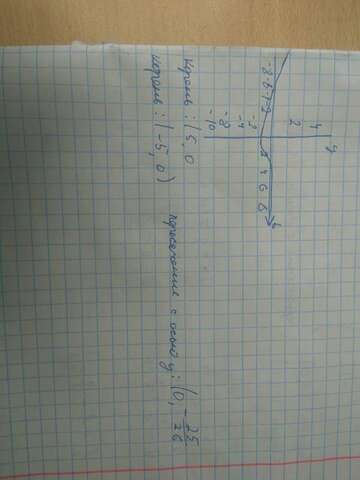 y
4
2
-8 -6 -4 -2 2 4 6 8 x
-2
-4
-8
-10
Корень: (5, 0
корень: (-5, 0)
пересечение с осью y: (0, -25/26